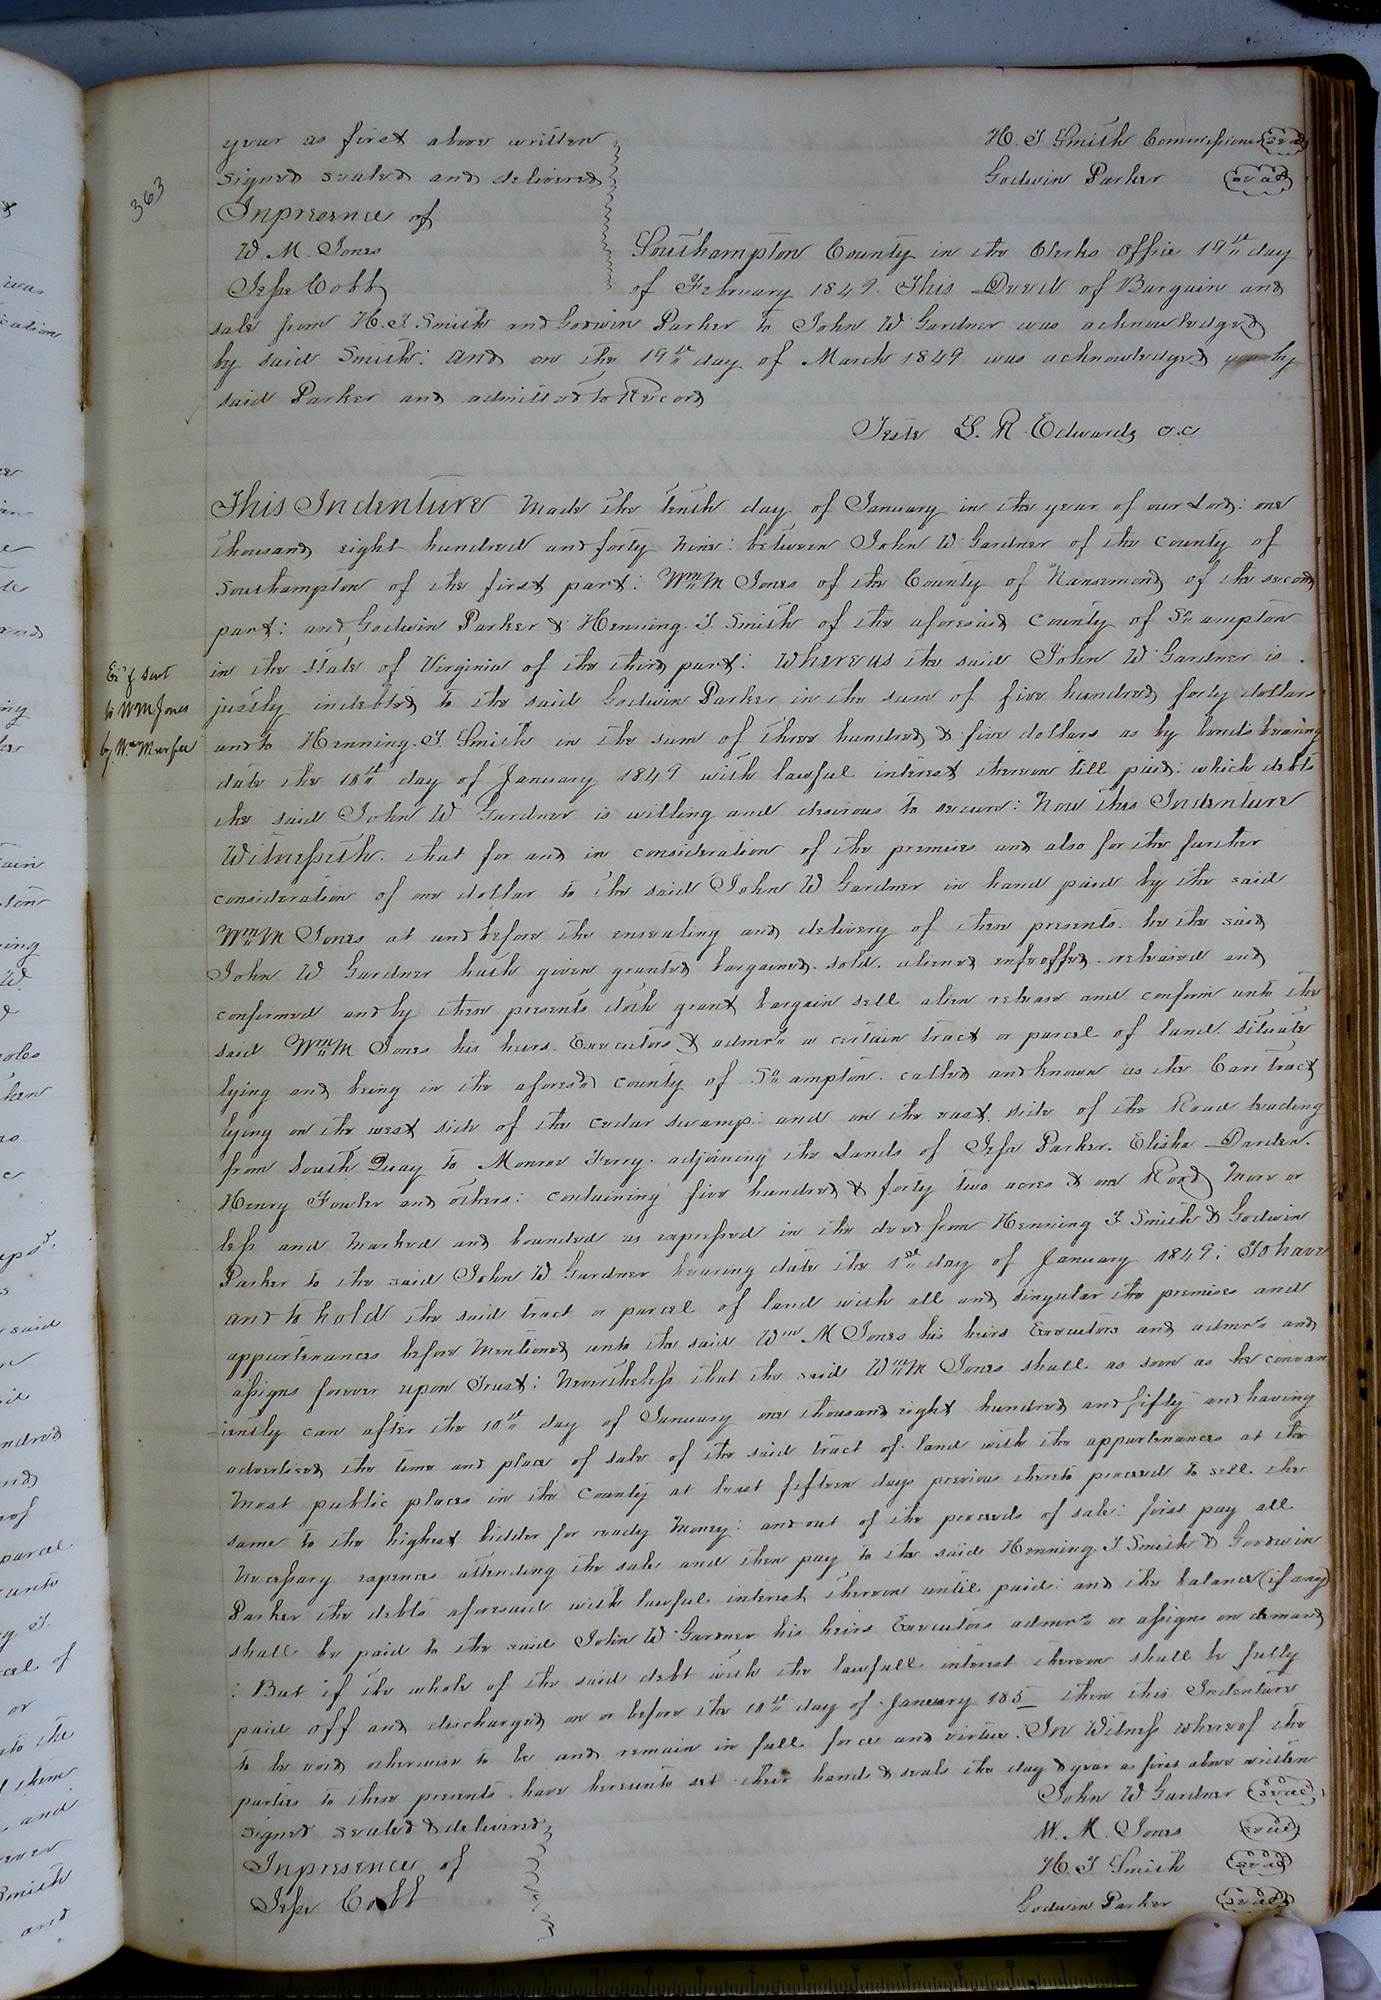 363
year as first above written
H. T Smith Commissioner Seal
Signed sealed and delivered
Godwin Parker Seal
Inpresence of
W. M. Jones
Southampton County in the Clerks Office 19th day
Jesse Cobb
of February 1849. This Deed of Bargain and
sale from H. T. Smith and Godwin Parker to John W Gardner was acknowledged
by said Smith: and on the 19th day of March 1849 was acknowledged by
said Parker and admitted to Record
Teste L. R. Edwards c.c
This Indenture Made the tenth day of January in the year of our Lord: one
thousand eight hundred and forty Nine: between John W Gardner of the County of
Southampton of the first part: Wm M Jones of the County of Nansemond of the second
part: and Godwin Parker & Henning T Smith of the aforesaid County of So ampton
in the State of Virginia of the third part: Whereas the said John W Gardner is
justly indebted to the said Godwin Parker in the sum of five hundred forty dollars
and to Henning T. Smith in the sum of three hundred & five dollars as by bonds bearing
date the 10th day of January 1849 with lawful interest thereon till paid: which debts
the said John W Gardner is willing and desirous to secure: Now this Indenture
Witnesseth. that for and in consideration of the premises and also for the further
consideration of one dollar to the said John W Gardner in hand paid by the said
Wm M Jones at and before the ensealing and delivery of these presents. he the said
John W Gardner hath given granted bargained. sold. aliened enfeoffed. released and
confirmed and by these presents doth grant bargain sell alien release and confirm unto the
said Wm M Jones his heirs. Executors & admrs a certain tract or parcel of land. situate
lying and being in the aforesd County of So ampton. called and known as the Carr tract
lying on the west side of the cedar swamp: and on the east side of the Road leading
from South Quay to Monroe Ferry. adjoining the Lands of Jesse Parker. Elisha Darden.
Henry Fowler and others: containing five hundred & forty two acres & one Rood More or
less and Marked and bounded as expressed in the deed from Henning T Smith & Godwin
Parker to the said John W Gardner bearing date the 1st day of January 1849: To have
and to hold the said tract or parcel of land with all and singular the premises and
appurtenances before Mentioned unto the said Wm M Jones his heirs Executors and admrs and
assigns forever upon Trust: Nevertheless that the said Wm M Jones shall as soon as he conven
iently can after the 10th day of January one thousand eight hundred and fifty and having
advertised the time and place of sale of the said tract of land with the appurtenances at the
Most public places in the County at least fifteen days previous thereto proceed to sell the
same to the highest bidder for ready Money: and out of the proceeds of sale: first pay all
Necessary expences attending the sale and then pay to the said Henning T Smith & Goodwin
Parker the debts aforesaid with lawful interest thereon until paid: and the balance (if any)
shall be paid to the said John W Gardner his heirs Executors admrs or assigns on demand
: But if the whole of the said debt with the lawfull interest thereon shall be fully
paid off and discharged on or before the 10th day of January 185_ then this Indenture
to be void otherwise to be and remain in full force and virtue. In Witness whereof the
parties to these presents have hereunto set their hands & seals the day & year as first above written
John W Gardner Seal
Signed sealed & delivered
W. M. Jones Seal
Inpresence of
H. T Smith Seal
Jesse Cobb
Godwin Parker Seal
sent
to W M Jones
by Wm Murfee